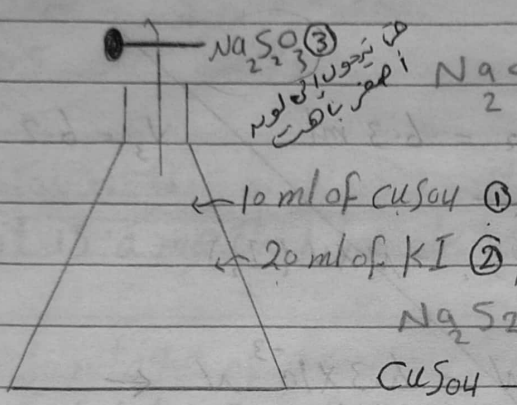 Na₂S₂O₃ ③
حتى يتحول إلى لونه
أصفر باهت
Na₂
10 ml of CuSO4 ①
20 ml of KI ②
Na₂S₂
CuSO4